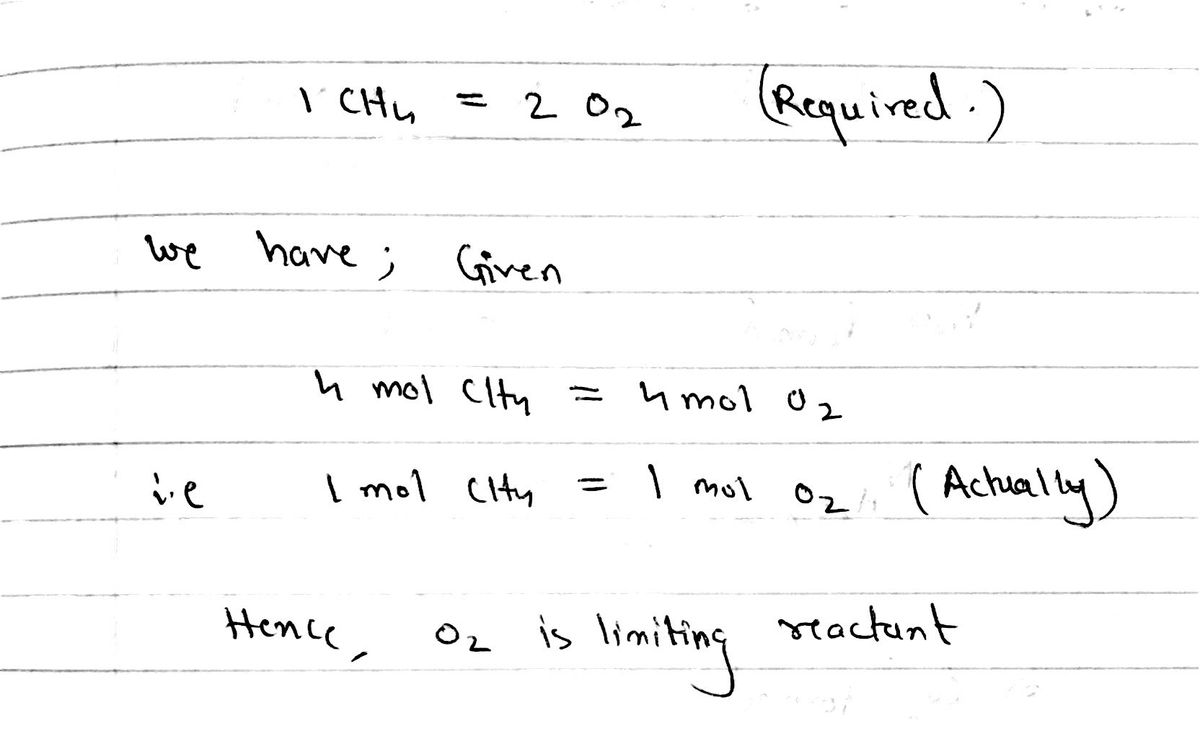 1 CH4 = 2 O2 (Required.)
we have; Given
4 mol CH4 = 4 mol O2
i.e 1 mol CH4 = 1 mol O2 (Actually)
Hence, O2 is limiting reactant